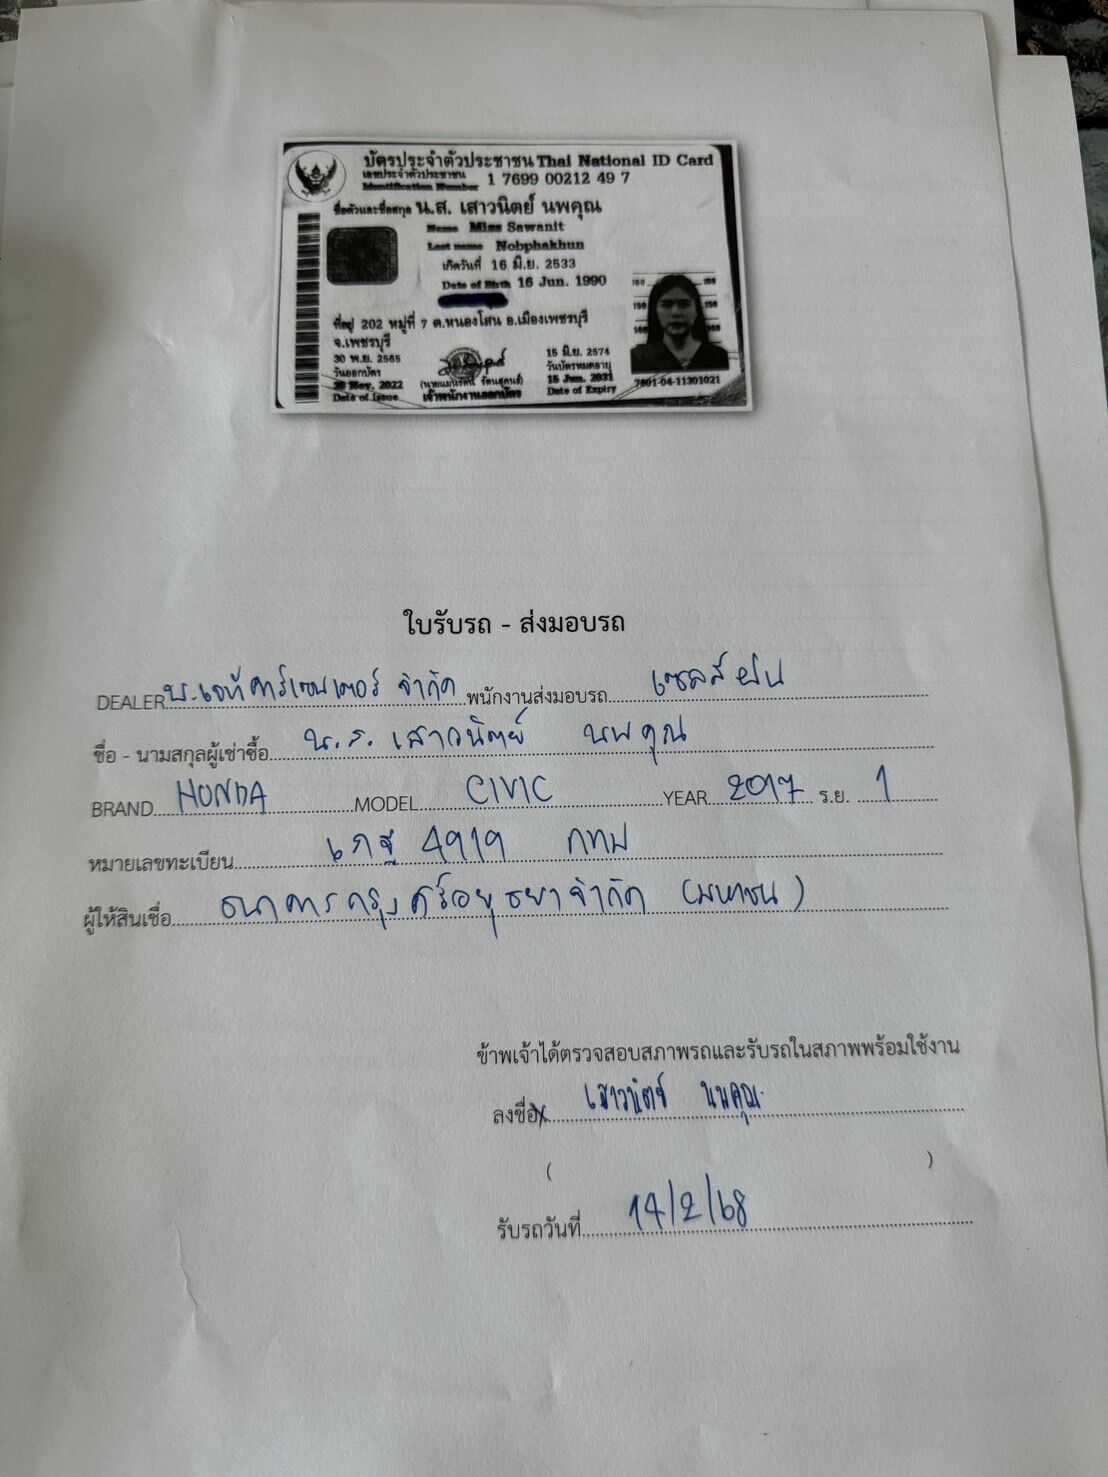 บัตรประจำตัวประชาชน Thai National ID Card
เลขประจำตัวประชาชน
Identification Number 1 7699 00212 49 7
ชื่อตัวและชื่อสกุล น.ส. เสาวนิตย์ นพคุณ
Name Miss Sawanit
Last name Nobphakhun
เกิดวันที่ 16 มิ.ย. 2533
Date of Birth 16 Jun. 1990
ที่อยู่ 202 หมู่ที่ 7 ต.หนองโสน อ.เมืองเพชรบุรี
จ.เพชรบุรี
30 พ.ย. 2565
วันออกบัตร
30 Nov. 2022
Date of Issue
เจ้าพนักงานออกบัตร
15 มิ.ย. 2574
วันบัตรหมดอายุ
15 Jun. 2031
Date of Expiry
7601-04-11301021
ใบรับรถ - ส่งมอบรถ
DEALER บ.เจท์คาร์เซนเตอร์ จำกัด พนักงานส่งมอบรถ เซลล์
ชื่อ - นามสกุลผู้เช่าซื้อ น.ส. เสาวนิตย์ นพคุณ
BRAND HONDA MODEL CIVIC YEAR 2017 ร.ย. 1
หมายเลขทะเบียน 6 กฐ 4919 กทม
ผู้ให้สินเชื่อ ธนาคารกรุงศรีอยุธยาจำกัด (มหาชน)
ข้าพเจ้าได้ตรวจสอบสภาพรถและรับรถในสภาพพร้อมใช้งาน
ลงชื่อ x เสาวนิตย์ นพคุณ
( )
รับรถวันที่ 14/2/68